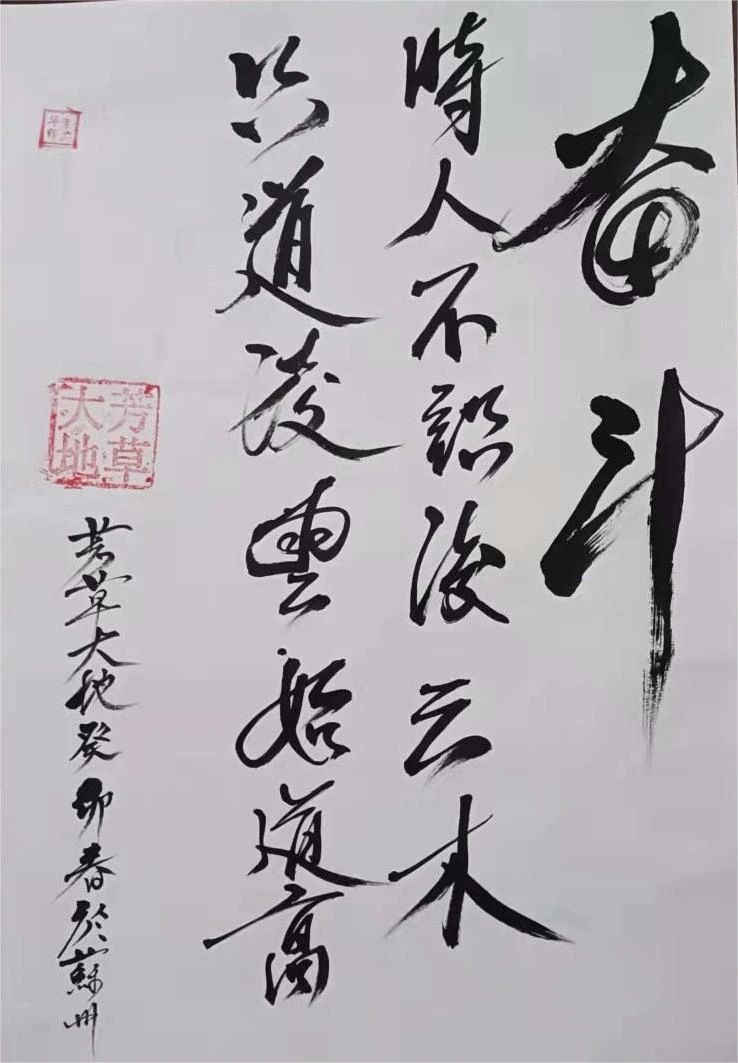 奋斗
時人不識凌云木
只道凌雲始道高
芳草大地
芳草大地癸卯春於蘇州